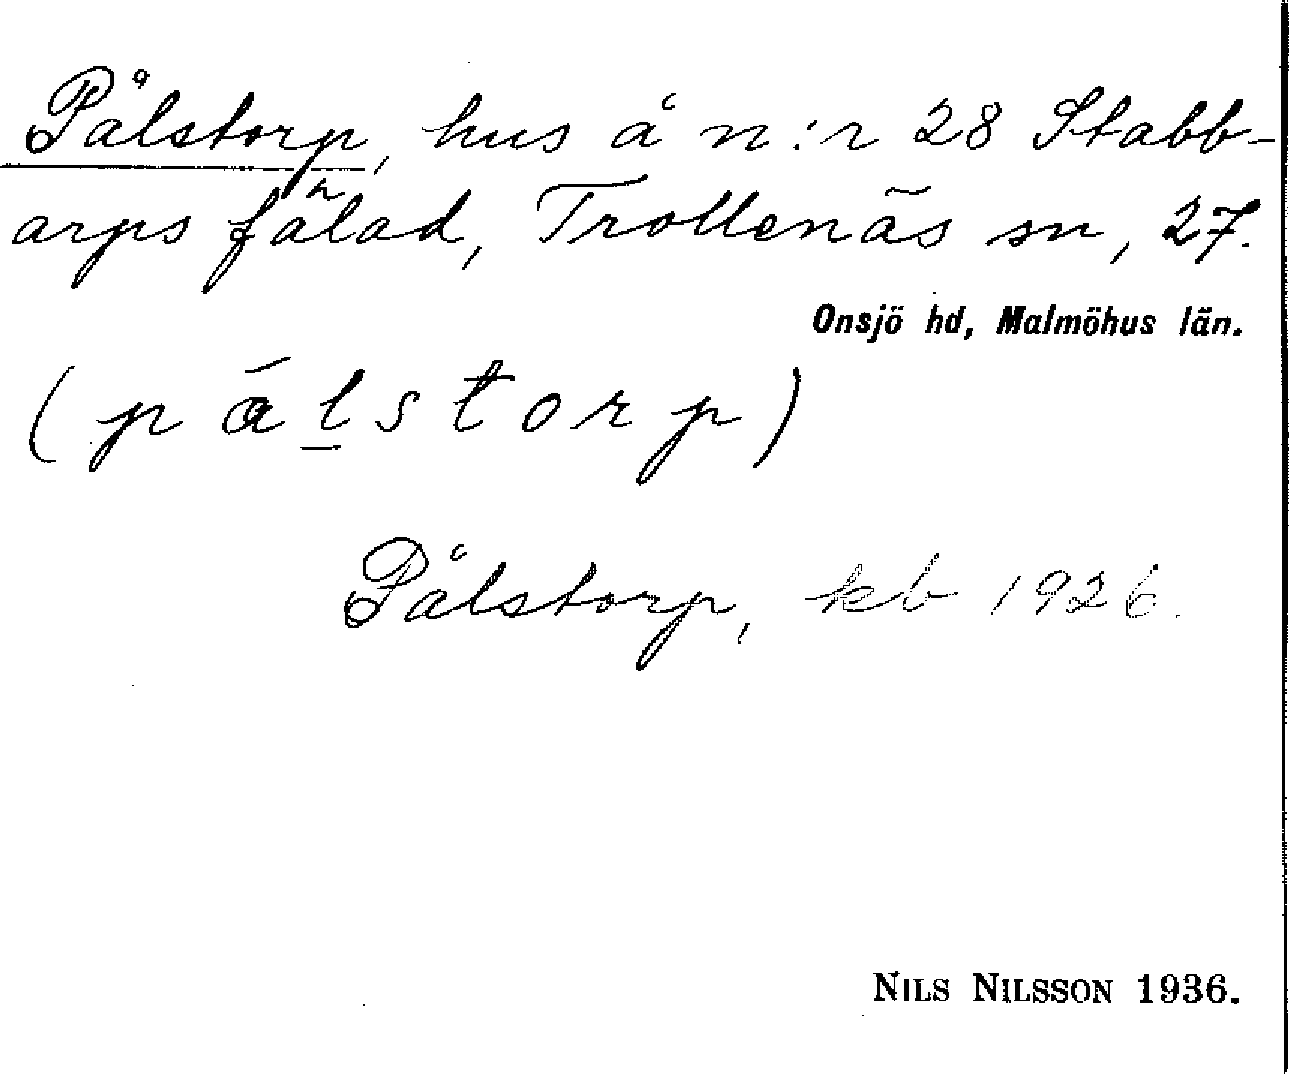 Pålstorp, hus å n:r 28 Stabb-
arps fälad, Trollenäs sn, 27.
Onsjö hd, Malmöhus län.
(pálstorp)
Pålstorp, kb 1926.
NILS NILSSON 1936.